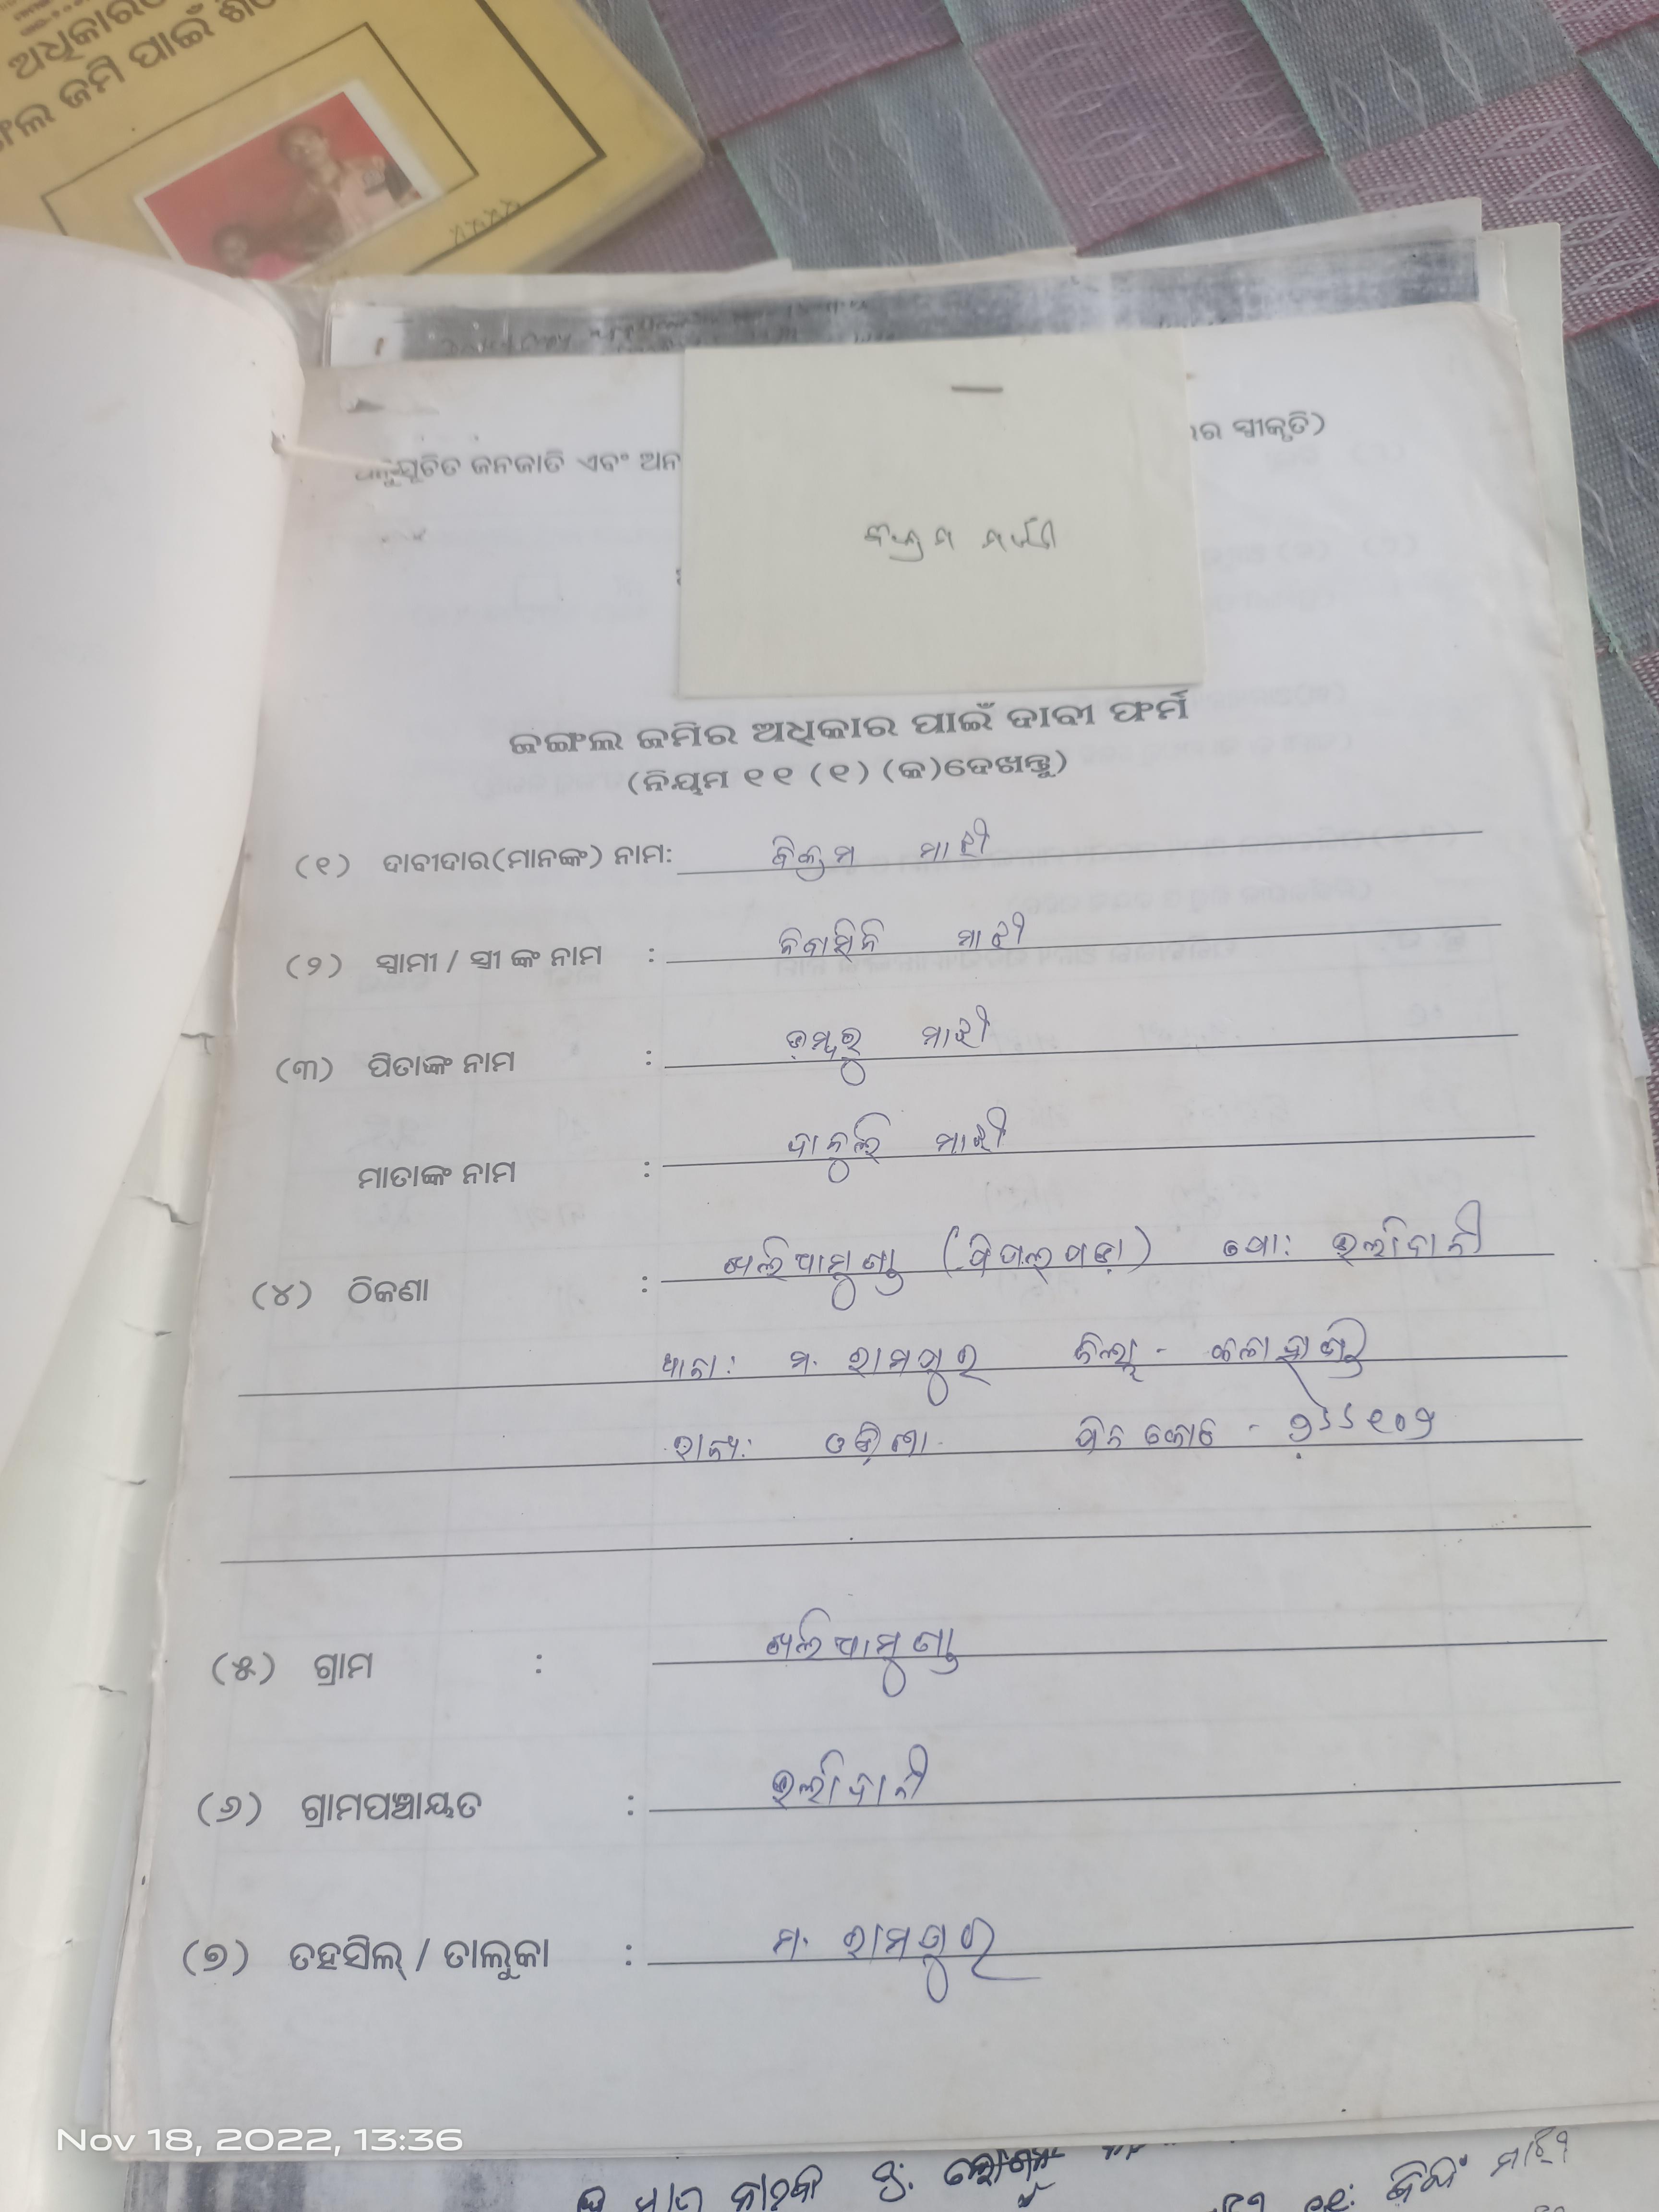 ଅଧିକାର
ଜଙ୍ଗଲ ଜମି ପାଇଁ
ଅନୁସୂଚିତ ଜନଜାତି ଏବଂ ଅନ
ର ସ୍ୱୀକୃତି)
ବିକ୍ରମ ମାଝୀ
ଜଙ୍ଗଲ ଜମିର ଅଧିକାର ପାଇଁ ଦାବୀ ଫର୍ମ
(ନିୟମ ୧୧ (୧) (କ)ଦେଖନ୍ତୁ)
(୧) ଦାବୀଦାର(ମାନଙ୍କ) ନାମ: ବିକ୍ରମ ମାଝୀ
(୨) ସ୍ୱାମୀ / ସ୍ତ୍ରୀ ଙ୍କ ନାମ : ନିବାସିନି ମାଝୀ
(୩) ପିତାଙ୍କ ନାମ : ଡମ୍ବରୁ ମାଝୀ
ମାତାଙ୍କ ନାମ : ମାଝୀ
(୪) ଠିକଣା : ଖଲିଆମୁଣ୍ଡା (ପିପଲପଡ଼ା) ପୋ:
ଥାନା: ମ. ରାମପୁର ଜିଲ୍ଲା - କଳାହାଣ୍ଡି
ରାଜ୍ୟ: ଓଡ଼ିଶା ପିନ କୋଡ - ୭୬୬୧୦୨
(୫) ଗ୍ରାମ : ଖଲିଆମୁଣ୍ଡା
(୬) ଗ୍ରାମପଞ୍ଚାୟତ :
(୭) ତହସିଲ୍ / ତାଲୁକା : ମ. ରାମପୁର
Nov 18, 2022, 13:36